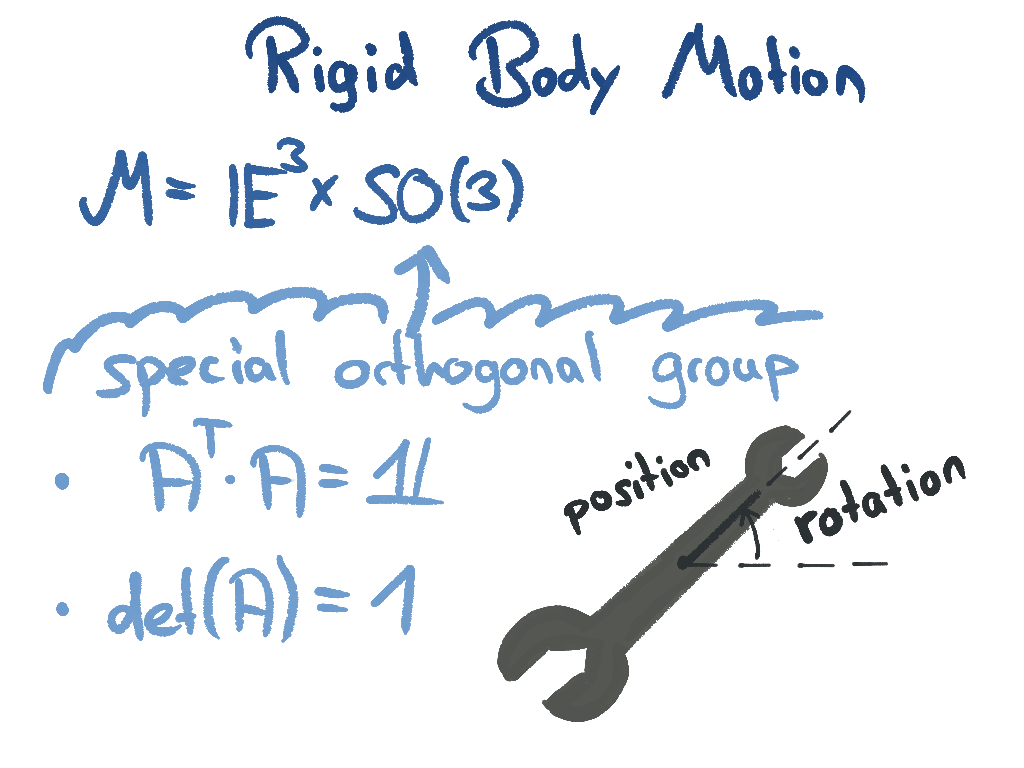 Rigid Body Motion
M = 𝔼³ × SO(3)
special orthogonal group
• Aᵀ · A = 𝟙
position
rotation
• det(A) = 1